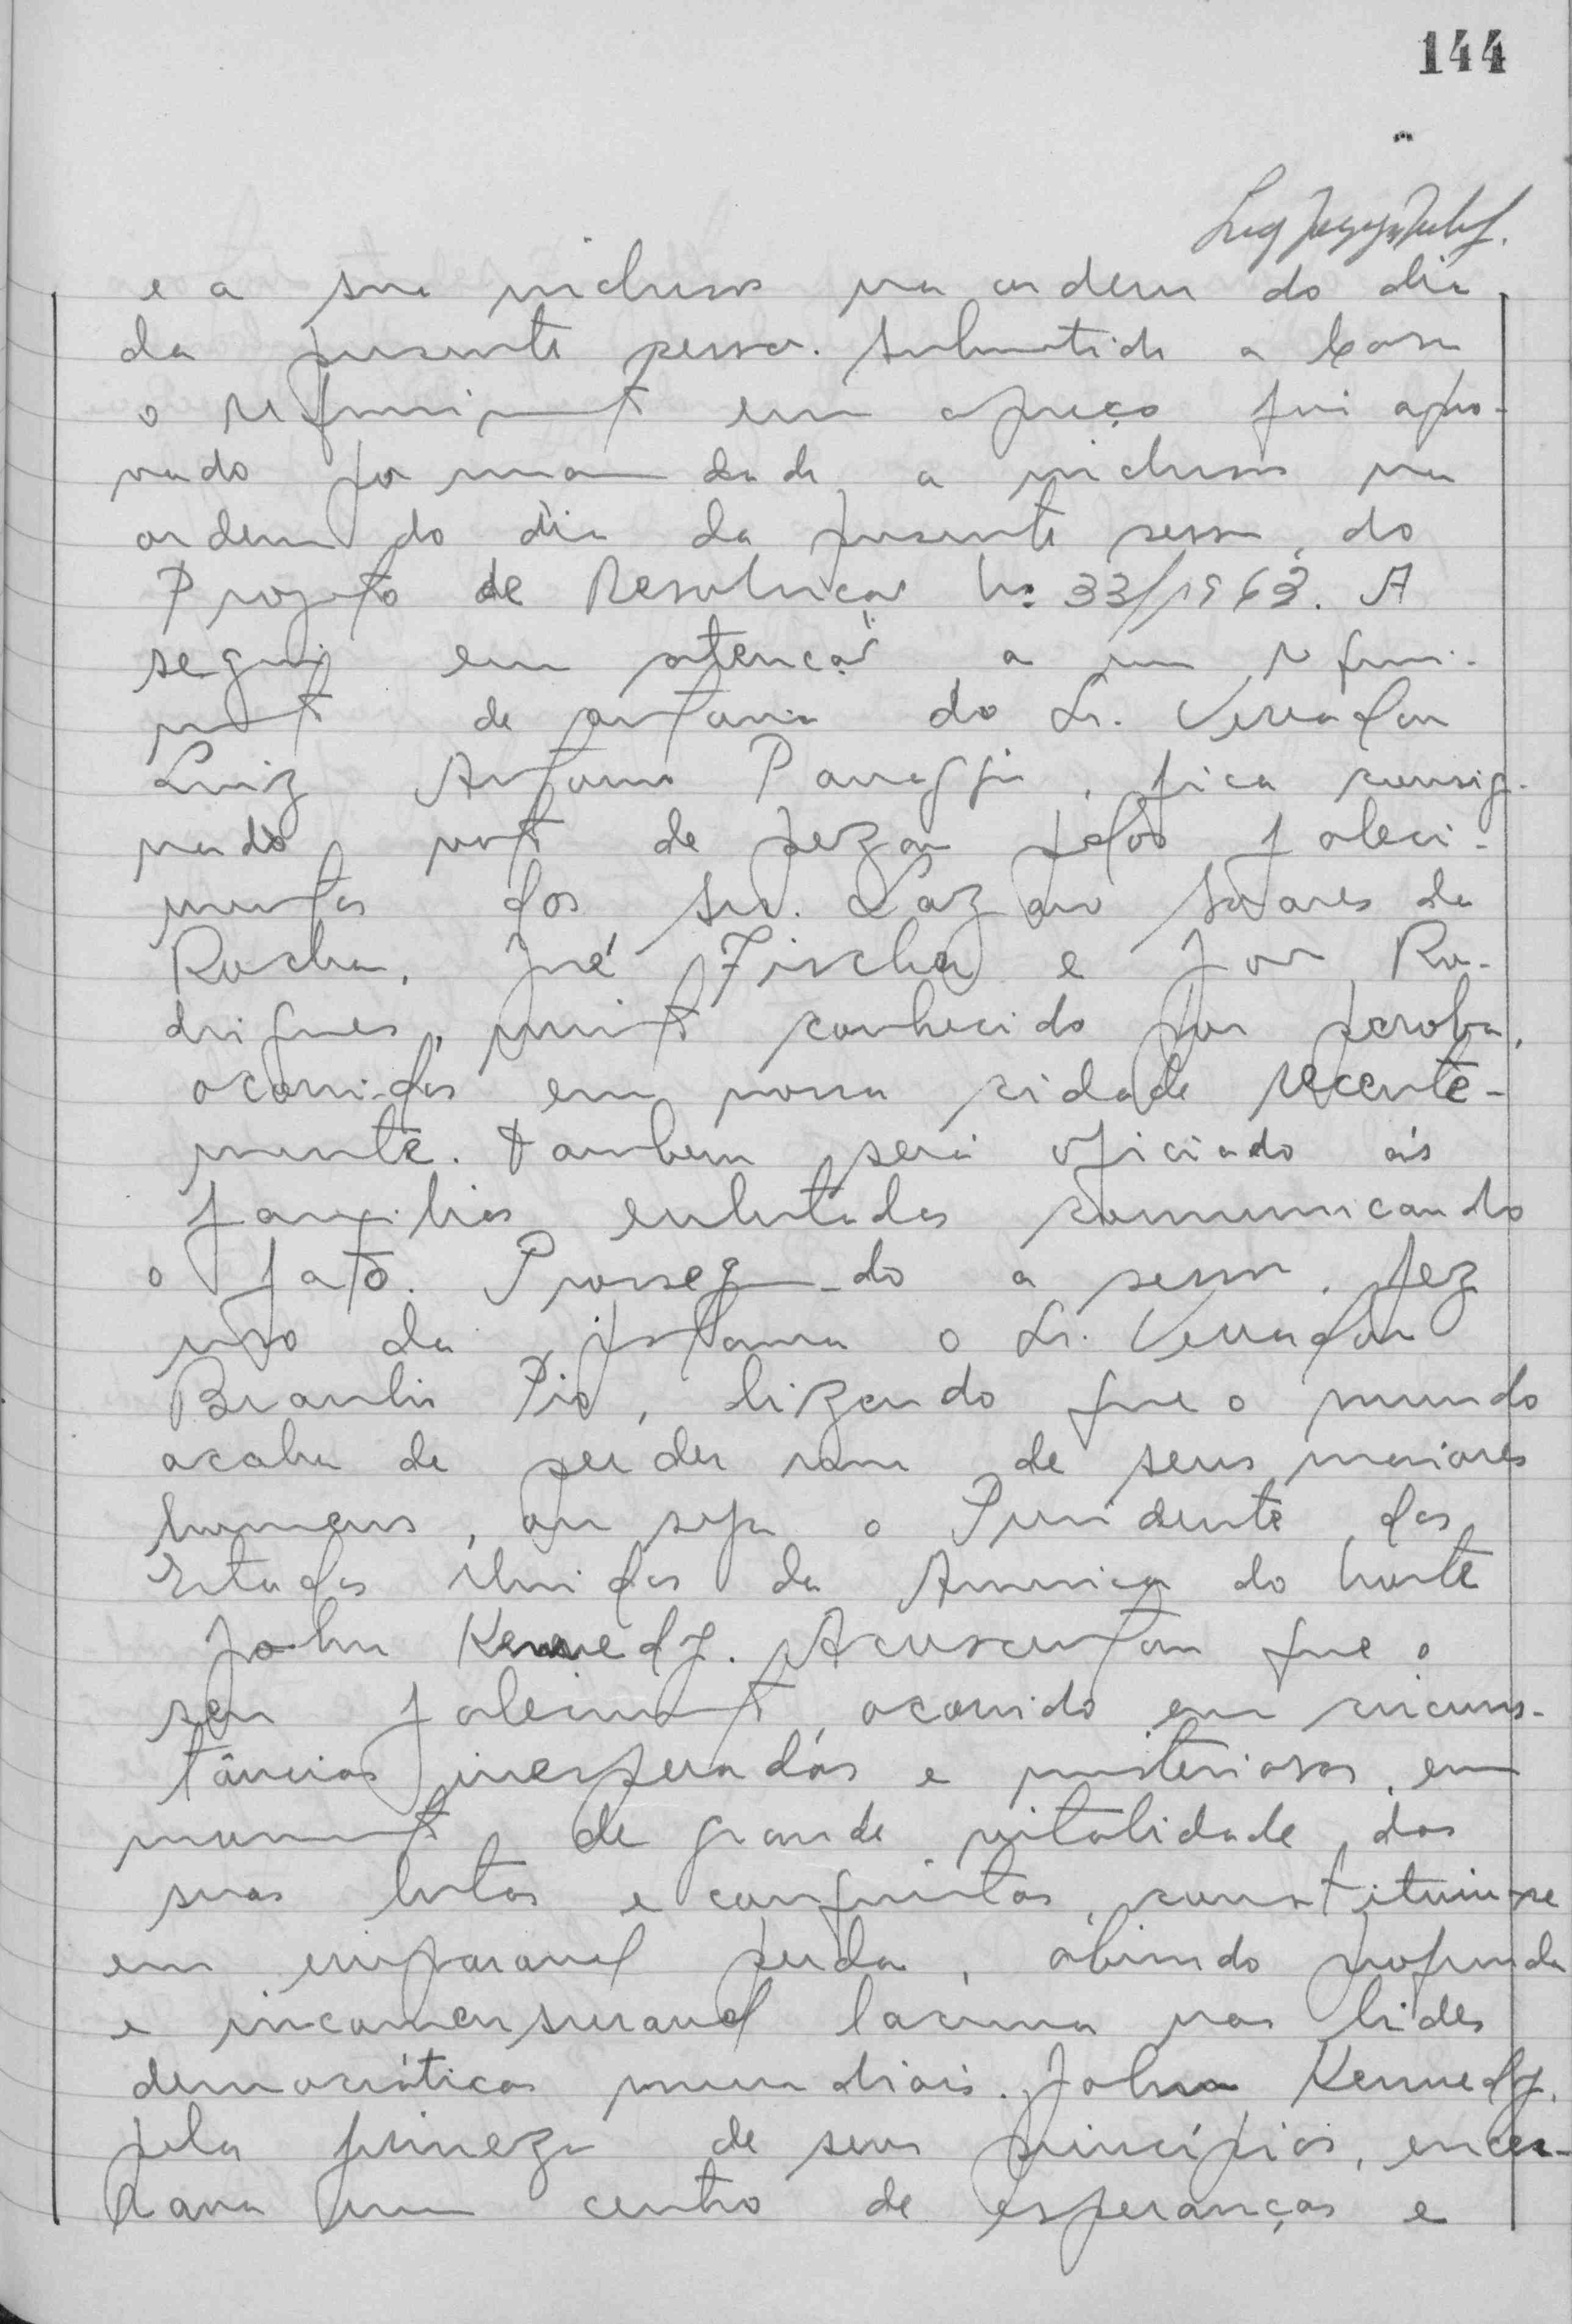 144
e a sua inclusão na ordem do dia
da presente sessão. Submetido a Casa
o requerimento em apreço foi apro-
vado por unanimidade a inclusão na
ordem do dia da presente sessão, do
Projeto de Resolução No 33/1963. A
seguir em atenção a um requeri-
mento de autoria do Sr. Vereador
Luiz Antonio Panaggio, fica consig-
nado voto de pezar pelos faleci-
mentos dos Srs. Lazaro Soares da
Rocha, José Fischer e João Ro-
drigues, muito conhecido por peroba,
ocorridos em nossa cidade recente-
mente. Tambem será oficiado ás
familias enlutadas comunicando
o fato. Prosseguindo a sessão, fez
uso da palavra o Sr. Vereador
Braulio Pio, dizendo que o mundo
acaba de perder um de seus maiores
homens, ou seja o Presidente dos
Estados Unidos da America do Norte
John Kennedy. Acrescentou que o
seu falecimento, ocorrido em circuns-
tâncias inesperadas e misteriosas, em
momento de grande vitalidade das
suas lutas e conquistas, constituiu-se
em irreparavel perda, abrindo profunda
e incomensuravel lacuna nas lides
democráticas mundiais. John Kennedy,
pela firmeza de seus princípios, encer-
rava um centro de esperanças e